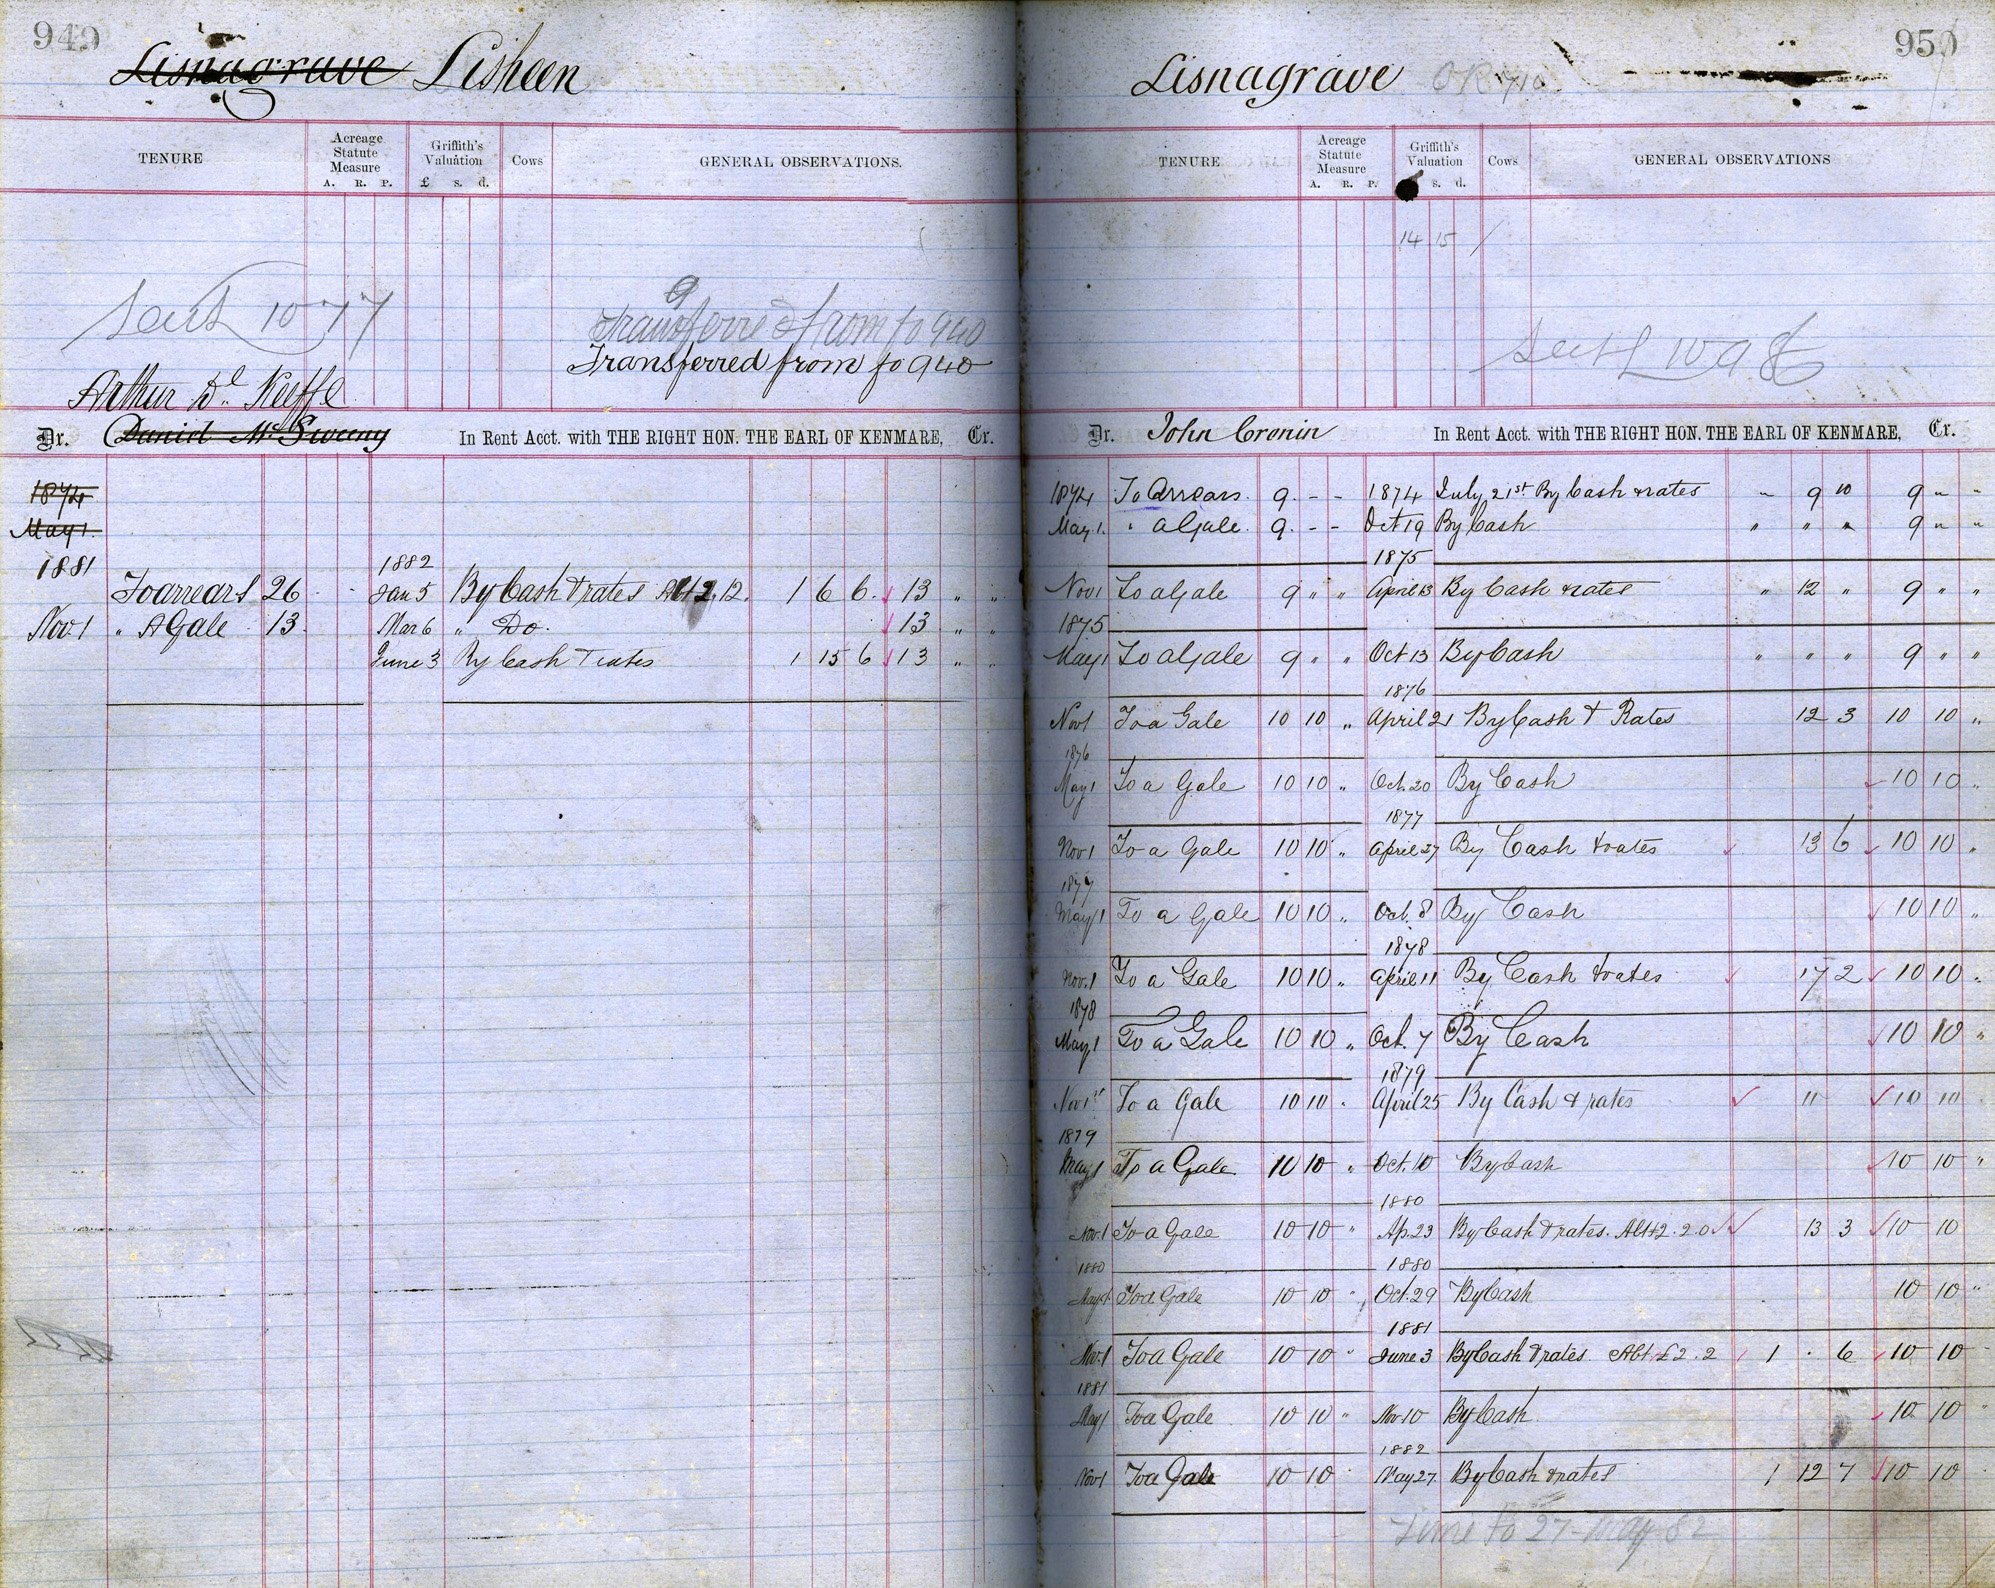 949
Lisnagrave Lisheen
TENURE Acreage Statute Measure A. R. P. Griffith's Valuation £ s. d. Cows GENERAL OBSERVATIONS.
1077
Transferred from fo 940
Transferred from fo 940
Arthur O'Keeffe
Dr. Daniel McSweeny In Rent Acct. with THE RIGHT HON. THE EARL OF KENMARE, Cr.
1874
May 1
1881 1882
To arrears 26 Jan 5 By Cash & rates Abt 2.12. 1 6 6 13 " "
Nov. 1 " A Gale 13 Mar 6 " Do. 13 " "
June 3 By Cash & rates 1 15 6 13 " "
950
Lisnagrave OR 710
TENURE Acreage Statute Measure A. R. P. Griffith's Valuation s. d. Cows GENERAL OBSERVATIONS
14 15
Dr. John Cronin In Rent Acct. with THE RIGHT HON. THE EARL OF KENMARE, Cr.
1874 To Arrears. 9 - - 1874 July 21st By Cash & rates " 9 10 9 " "
May 1. " a Gale. 9 - - Oct 19 By Cash " " " 9 " "
1875
Nov 1 To a Gale 9 " " April 13 By Cash & rates " 12 " 9 " "
1875
May 1 To a Gale 9 " " Oct 13 By Cash " " " 9 " "
1876
Nov 1 To a Gale 10 10 " April 21 By Cash & Rates 12 3 10 10 "
1876
May 1 To a Gale 10 10 " Oct. 20 By Cash 10 10 "
1877
Nov 1 To a Gale 10 10 " April 27 By Cash & rates 13 6 10 10 "
1877
May 1 To a Gale 10 10 " Oct. 8 By Cash 10 10 "
1878
Nov. 1 To a Gale 10 10 " April 11 By Cash & rates 17 2 10 10 "
1878
May 1 To a Gale 10 10 " Oct. 7 By Cash 10 10 "
1879
Nov 1st To a Gale 10 10 " April 25 By Cash & rates 11 10 10
1879
May 1 To a Gale 10 10 " Oct. 10 By Cash 10 10 "
1880
Nov. 1 To a Gale 10 10 " Ap. 23 By Cash & rates. Abt 2.2.0 13 3 10 10
1880 1880
May 1 To a Gale 10 10 " Oct. 29 By Cash 10 10 "
1881
Nov. 1 To a Gale 10 10 " June 3 By Cash & rates Abt £2.2 1 . 6 10 10
1881
May 1 To a Gale 10 10 " Nov 10 By Cash 10 10 "
1882
Nov 1 To a Gale 10 10 May 27 By Cash & rates 1 12 7 10 10
to 27 May 82